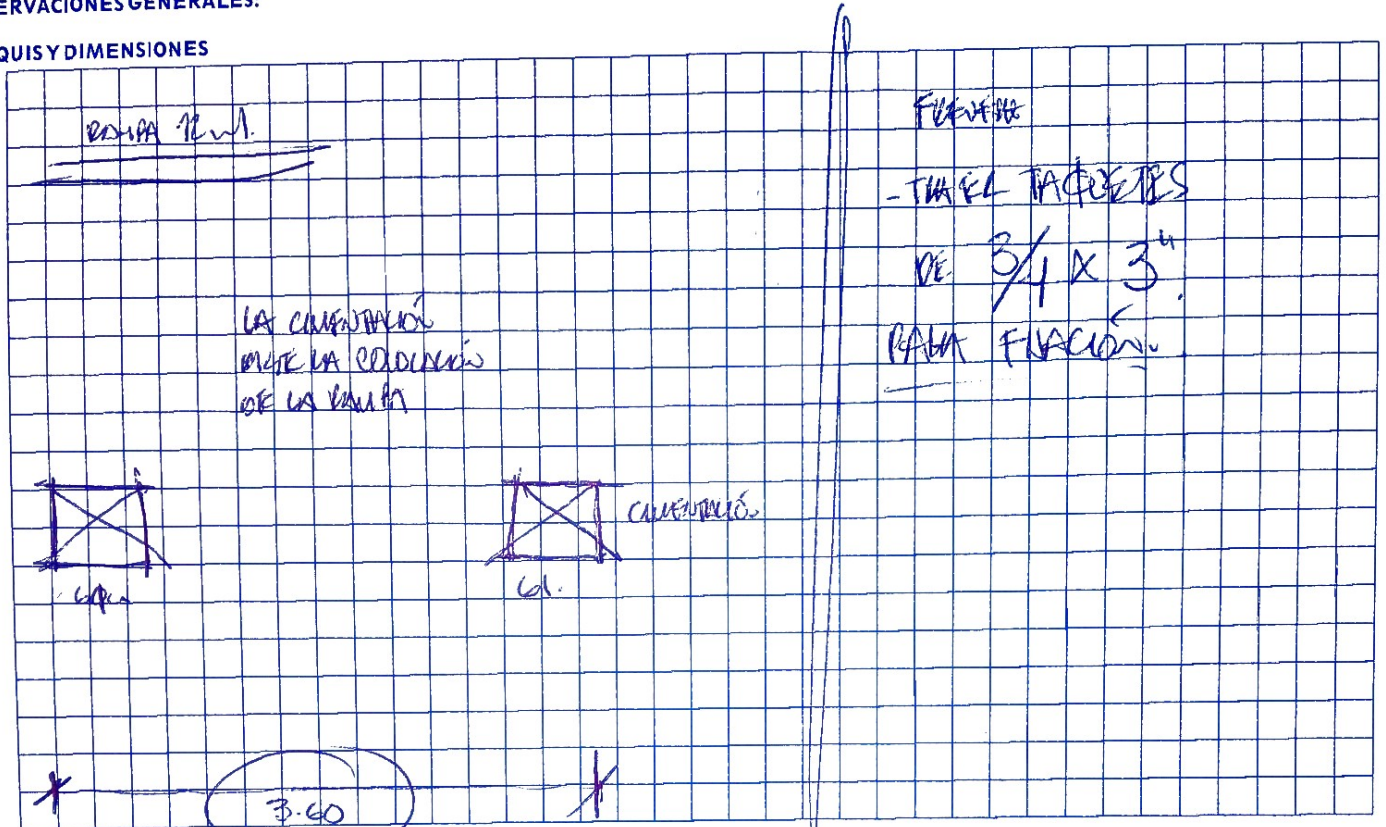 ERVACIONES GENERALES:
QUIS Y DIMENSIONES
RAMPA 12 ml.
LA CIMENTACIÓN
LA COLOCACIÓN
DE LA RAMPA
CIMENTACIÓ
61.
3.60
- TRAER TAQUETES
DE 3/4 X 3"
PARA FIJACIÓN.